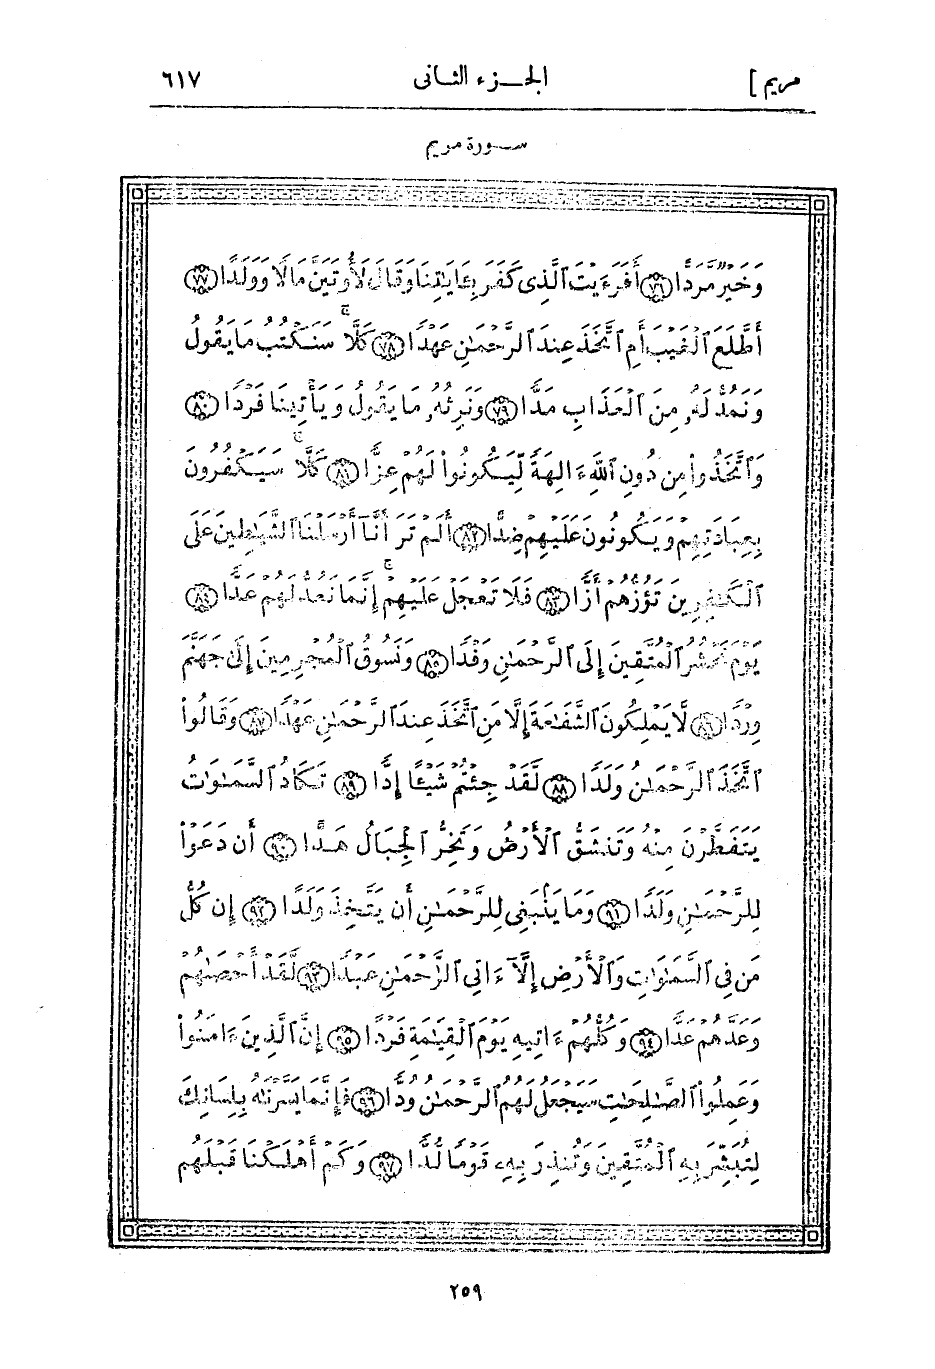 مريم ]
الجـزء الثانى
٦١٧
سـورة مريم
وَخَيْرٌ مَّرَدًّا ٧٦ أَفَرَءَيْتَ ٱلَّذِى كَفَرَ بِـَٔايَـٰتِنَا وَقَالَ لَأُوتَيَنَّ مَالًا وَوَلَدًا ٧٧
أَطَّلَعَ ٱلْغَيْبَ أَمِ ٱتَّخَذَ عِندَ ٱلرَّحْمَـٰنِ عَهْدًا ٧٨ كَلَّا ۚ سَنَكْتُبُ مَا يَقُولُ
وَنَمُدُّ لَهُۥ مِنَ ٱلْعَذَابِ مَدًّا ٧٩ وَنَرِثُهُۥ مَا يَقُولُ وَيَأْتِينَا فَرْدًا ٨٠
وَٱتَّخَذُوا۟ مِن دُونِ ٱللَّهِ ءَالِهَةً لِّيَكُونُوا۟ لَهُمْ عِزًّا ٨١ كَلَّا ۚ سَيَكْفُرُونَ
بِعِبَادَتِهِمْ وَيَكُونُونَ عَلَيْهِمْ ضِدًّا ٨٢ أَلَمْ تَرَ أَنَّآ أَرْسَلْنَا ٱلشَّيَـٰطِينَ عَلَى
ٱلْكَـٰفِرِينَ تَؤُزُّهُمْ أَزًّا ٨٣ فَلَا تَعْجَلْ عَلَيْهِمْ ۖ إِنَّمَا نَعُدُّ لَهُمْ عَدًّا ٨٤
يَوْمَ نَحْشُرُ ٱلْمُتَّقِينَ إِلَى ٱلرَّحْمَـٰنِ وَفْدًا ٨٥ وَنَسُوقُ ٱلْمُجْرِمِينَ إِلَىٰ جَهَنَّمَ
وِرْدًا ٨٦ لَّا يَمْلِكُونَ ٱلشَّفَـٰعَةَ إِلَّا مَنِ ٱتَّخَذَ عِندَ ٱلرَّحْمَـٰنِ عَهْدًا ٨٧ وَقَالُوا۟
ٱتَّخَذَ ٱلرَّحْمَـٰنُ وَلَدًا ٨٨ لَّقَدْ جِئْتُمْ شَيْـًٔا إِدًّا ٨٩ تَكَادُ ٱلسَّمَـٰوَٰتُ
يَتَفَطَّرْنَ مِنْهُ وَتَنشَقُّ ٱلْأَرْضُ وَتَخِرُّ ٱلْجِبَالُ هَدًّا ٩٠ أَن دَعَوْا۟
لِلرَّحْمَـٰنِ وَلَدًا ٩١ وَمَا يَنۢبَغِى لِلرَّحْمَـٰنِ أَن يَتَّخِذَ وَلَدًا ٩٢ إِن كُلُّ
مَن فِى ٱلسَّمَـٰوَٰتِ وَٱلْأَرْضِ إِلَّآ ءَاتِى ٱلرَّحْمَـٰنِ عَبْدًا ٩٣ لَّقَدْ أَحْصَىٰهُمْ
وَعَدَّهُمْ عَدًّا ٩٤ وَكُلُّهُمْ ءَاتِيهِ يَوْمَ ٱلْقِيَـٰمَةِ فَرْدًا ٩٥ إِنَّ ٱلَّذِينَ ءَامَنُوا۟
وَعَمِلُوا۟ ٱلصَّـٰلِحَـٰتِ سَيَجْعَلُ لَهُمُ ٱلرَّحْمَـٰنُ وُدًّا ٩٦ فَإِنَّمَا يَسَّرْنَـٰهُ بِلِسَانِكَ
لِتُبَشِّرَ بِهِ ٱلْمُتَّقِينَ وَتُنذِرَ بِهِۦ قَوْمًا لُّدًّا ٩٧ وَكَمْ أَهْلَكْنَا قَبْلَهُم
٢٥٩